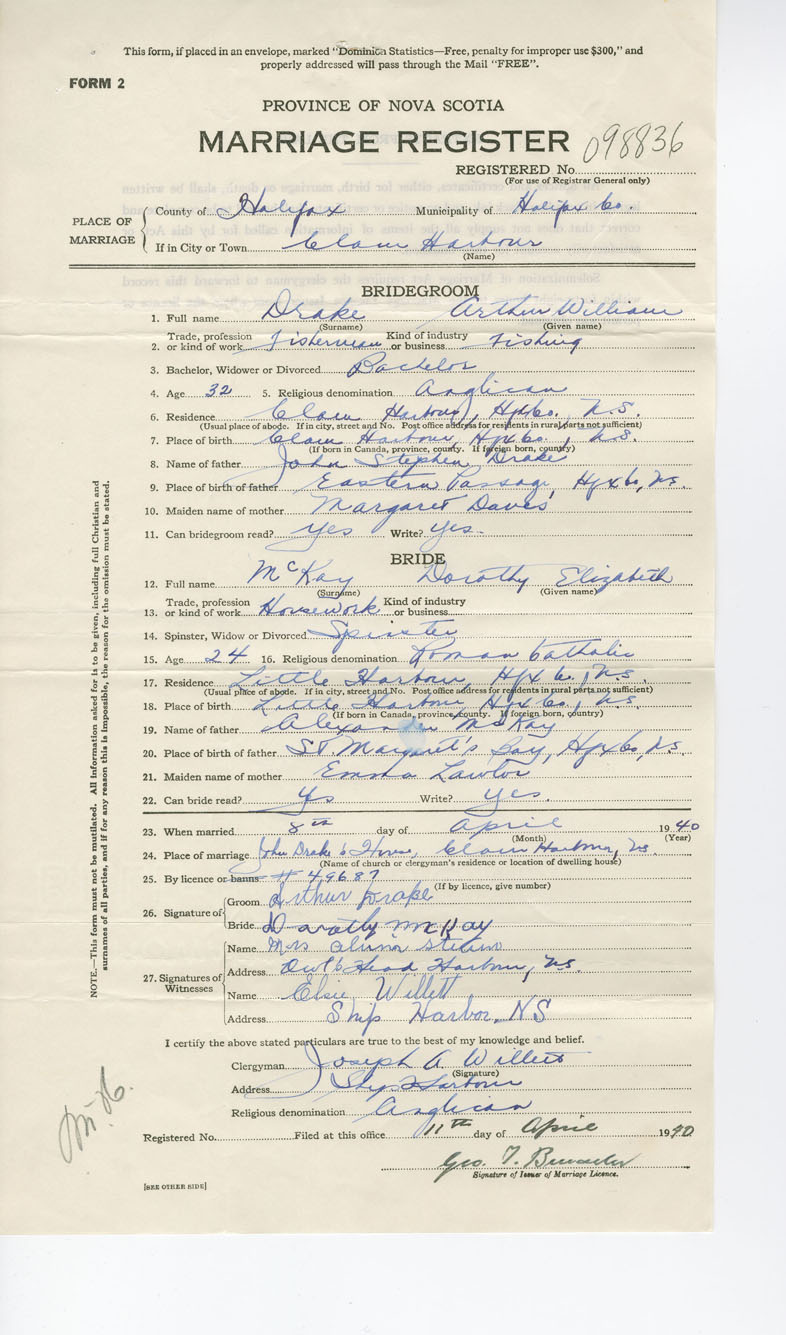 This form, if placed in an envelope, marked "Dominion Statistics—Free, penalty for improper use $300," and
properly addressed will pass through the Mail "FREE".
FORM 2
PROVINCE OF NOVA SCOTIA
MARRIAGE REGISTER 098836
REGISTERED No.
(For use of Registrar General only)
PLACE OF MARRIAGE
County of Halifax Municipality of Halifax Co.
If in City or Town Clam Harbour
(Name)
BRIDEGROOM
1. Full name Drake Arthur William
(Surname) (Given name)
2. Trade, profession or kind of work Fisherman Kind of industry or business Fishing
3. Bachelor, Widower or Divorced Bachelor
4. Age 32 5. Religious denomination Anglican
6. Residence Clam Harbour, Hfx Co. N.S.
(Usual place of abode. If in city, street and No. Post office address for residents in rural parts not sufficient)
7. Place of birth Clam Harbour, Hfx Co., N.S.
(If born in Canada, province, county. If foreign born, country)
8. Name of father John Stephen Drake
9. Place of birth of father Eastern Passage, Hfx Co, N.S.
10. Maiden name of mother Margaret Davis
11. Can bridegroom read? yes Write? yes.
BRIDE
12. Full name McKay Dorothy Elizabeth
(Surname) (Given name)
13. Trade, profession or kind of work Housework Kind of industry or business
14. Spinster, Widow or Divorced Spinster
15. Age 24 16. Religious denomination Roman Catholic
17. Residence Little Harbour, Hfx Co., N.S.
(Usual place of abode. If in city, street and No. Post office address for residents in rural parts not sufficient)
18. Place of birth Little Harbour, Hfx Co., N.S.
(If born in Canada, province, county. If foreign born, country)
19. Name of father Alexander McKay
20. Place of birth of father St Margaret's Bay, Hfx Co, N.S.
21. Maiden name of mother Emma Lawlor
22. Can bride read? Yes Write? yes.
23. When married 8th day of April 1940
(Month) (Year)
24. Place of marriage John Drake's House, Clam Harbour, N.S.
(Name of church or clergyman's residence or location of dwelling house)
25. By licence or banns # 49687
(If by licence, give number)
26. Signature of
Groom Arthur Drake
Bride Dorothy McKay
27. Signatures of Witnesses
Name Mrs
Address Owl's Head Harbour, N.S.
Name Elsie Willett
Address Ship Harbor, NS
I certify the above stated particulars are true to the best of my knowledge and belief.
Clergyman Joseph A. Willett
(Signature)
Address Ship Harbour
Religious denomination Anglican
Registered No. Filed at this office 11th day of April 1940
Geo. T.
Signature of Issuer of Marriage Licence.
[SEE OTHER SIDE]
NOTE.—This form must not be mutilated. All information asked for is to be given, including full Christian and
surnames of all parties, and if for any reason this is impossible, the reason for the omission must be stated.